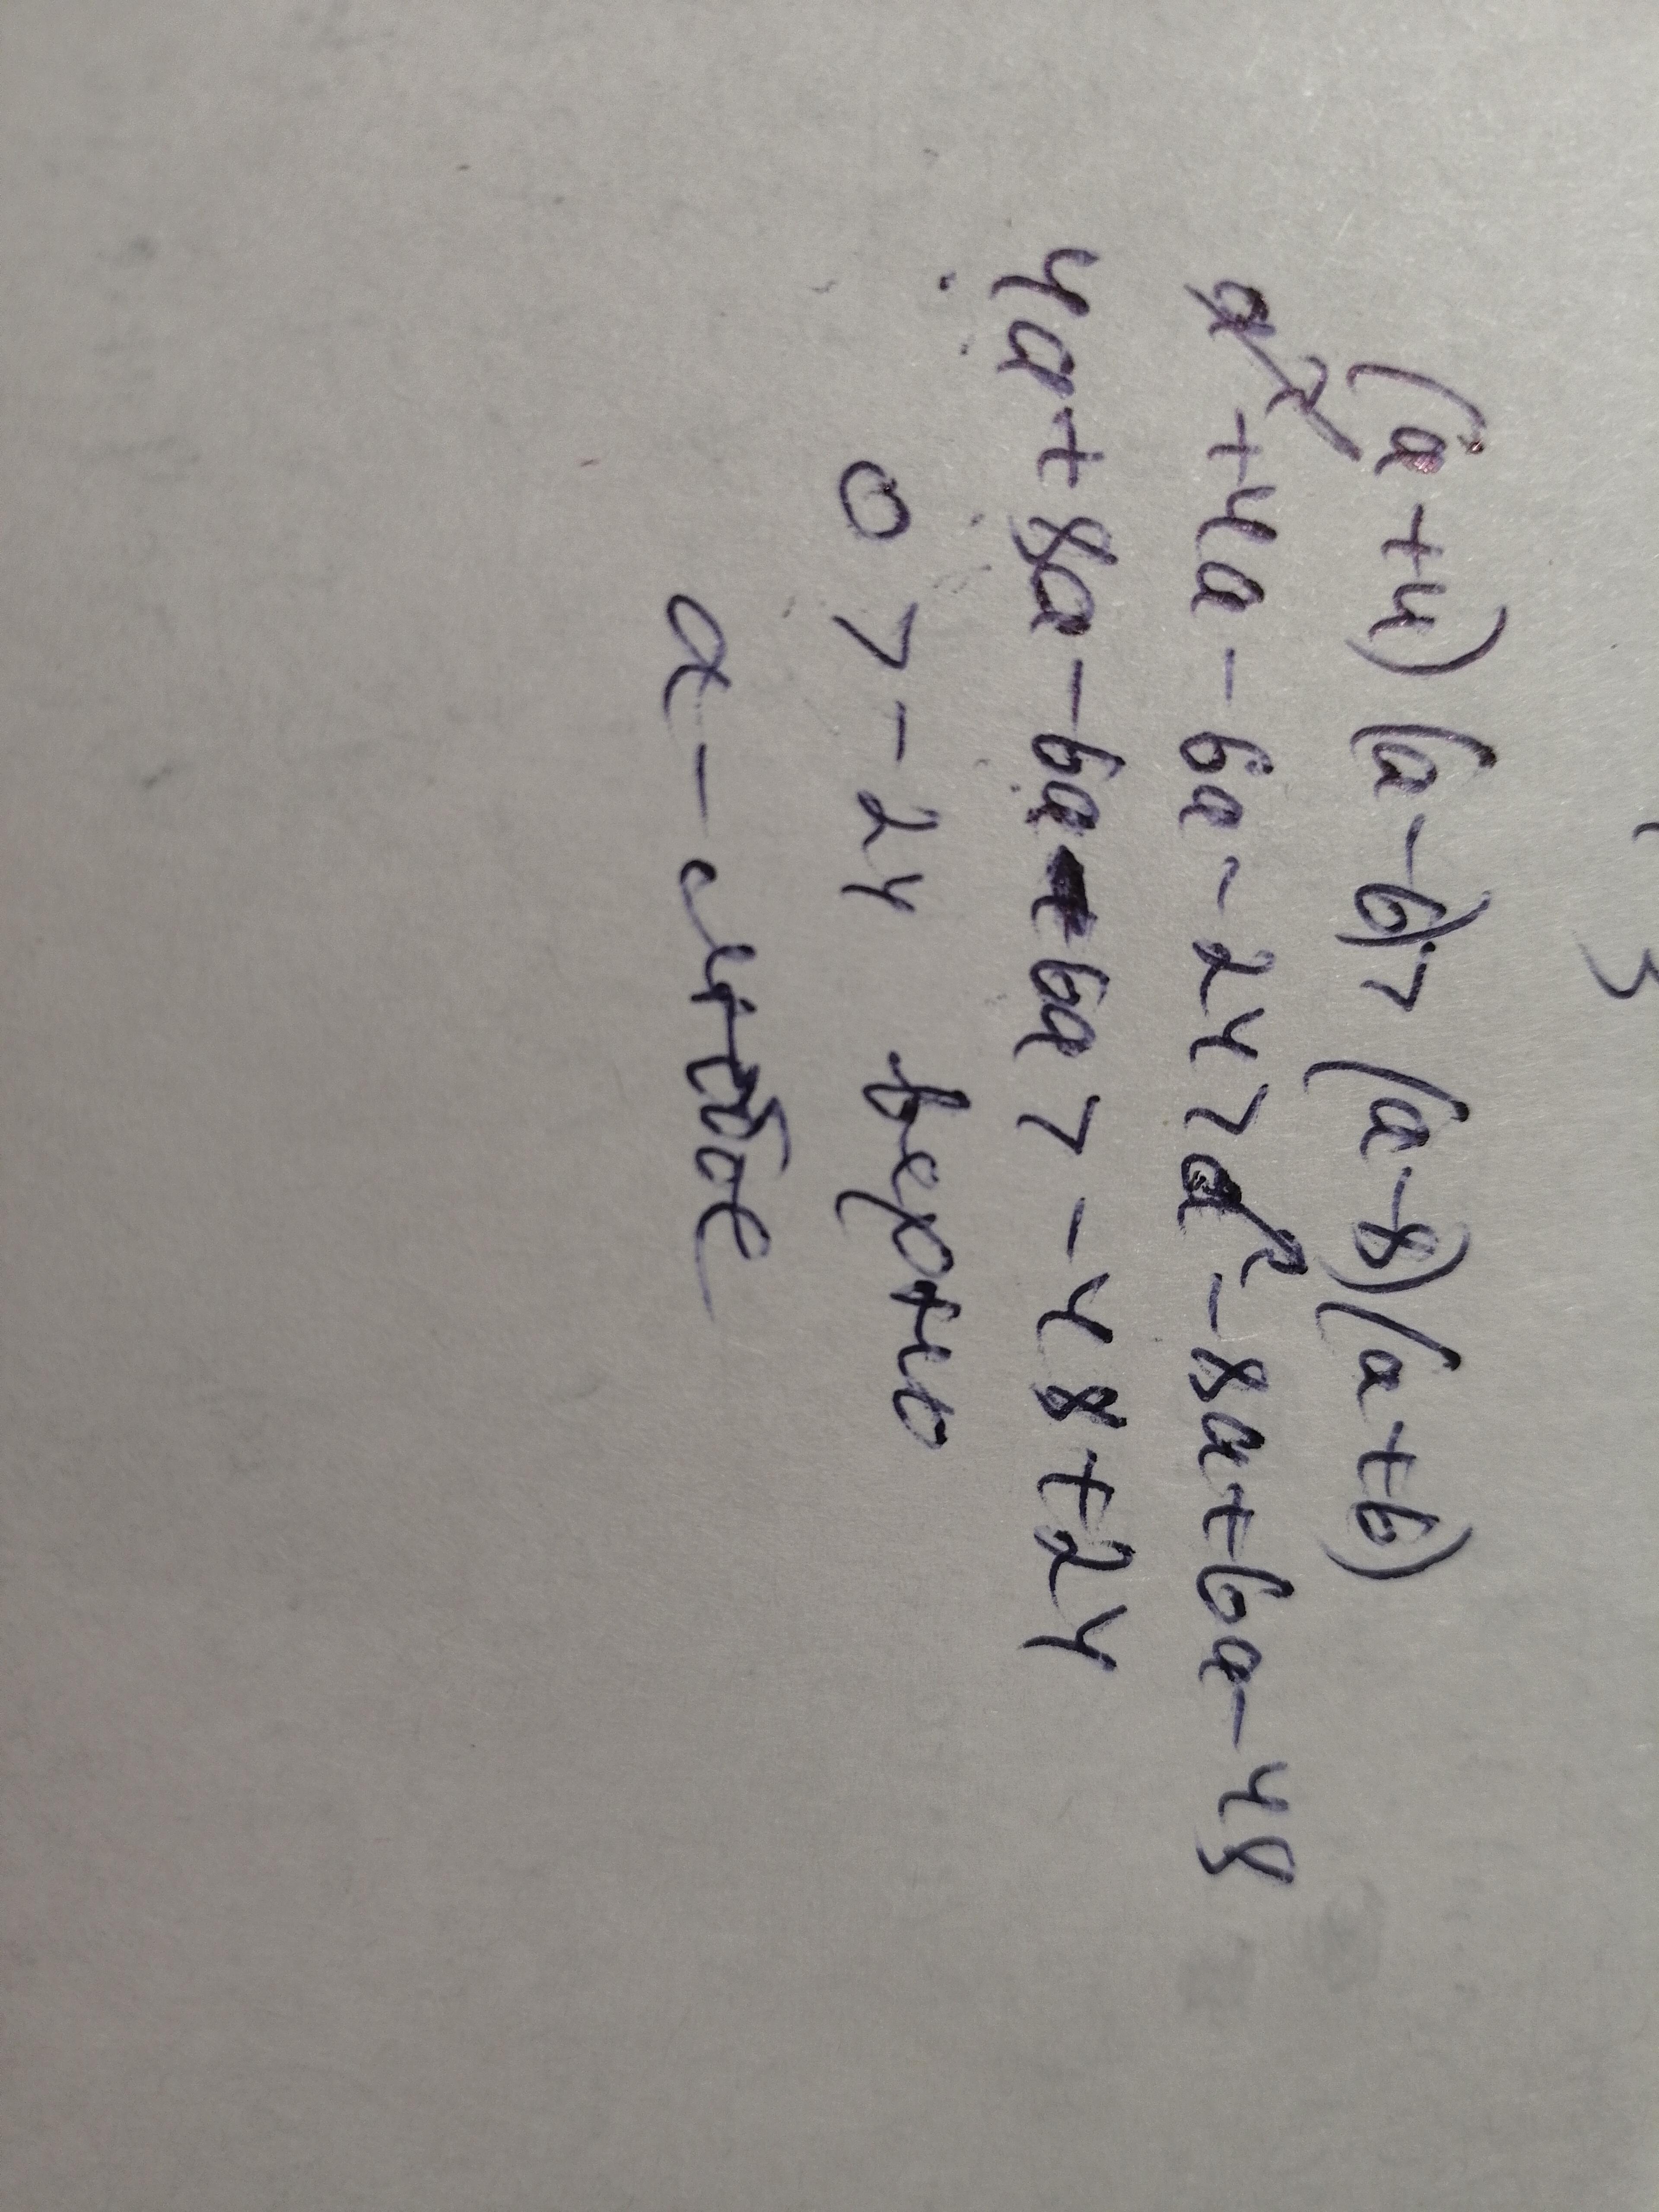 (a+4)(a-6)>(a-8)(a+6)
a²+4a-6a-24>a²-8a+6a-48
4a+8a-6a-6a>-48+24
0>-24 верно
a - любое